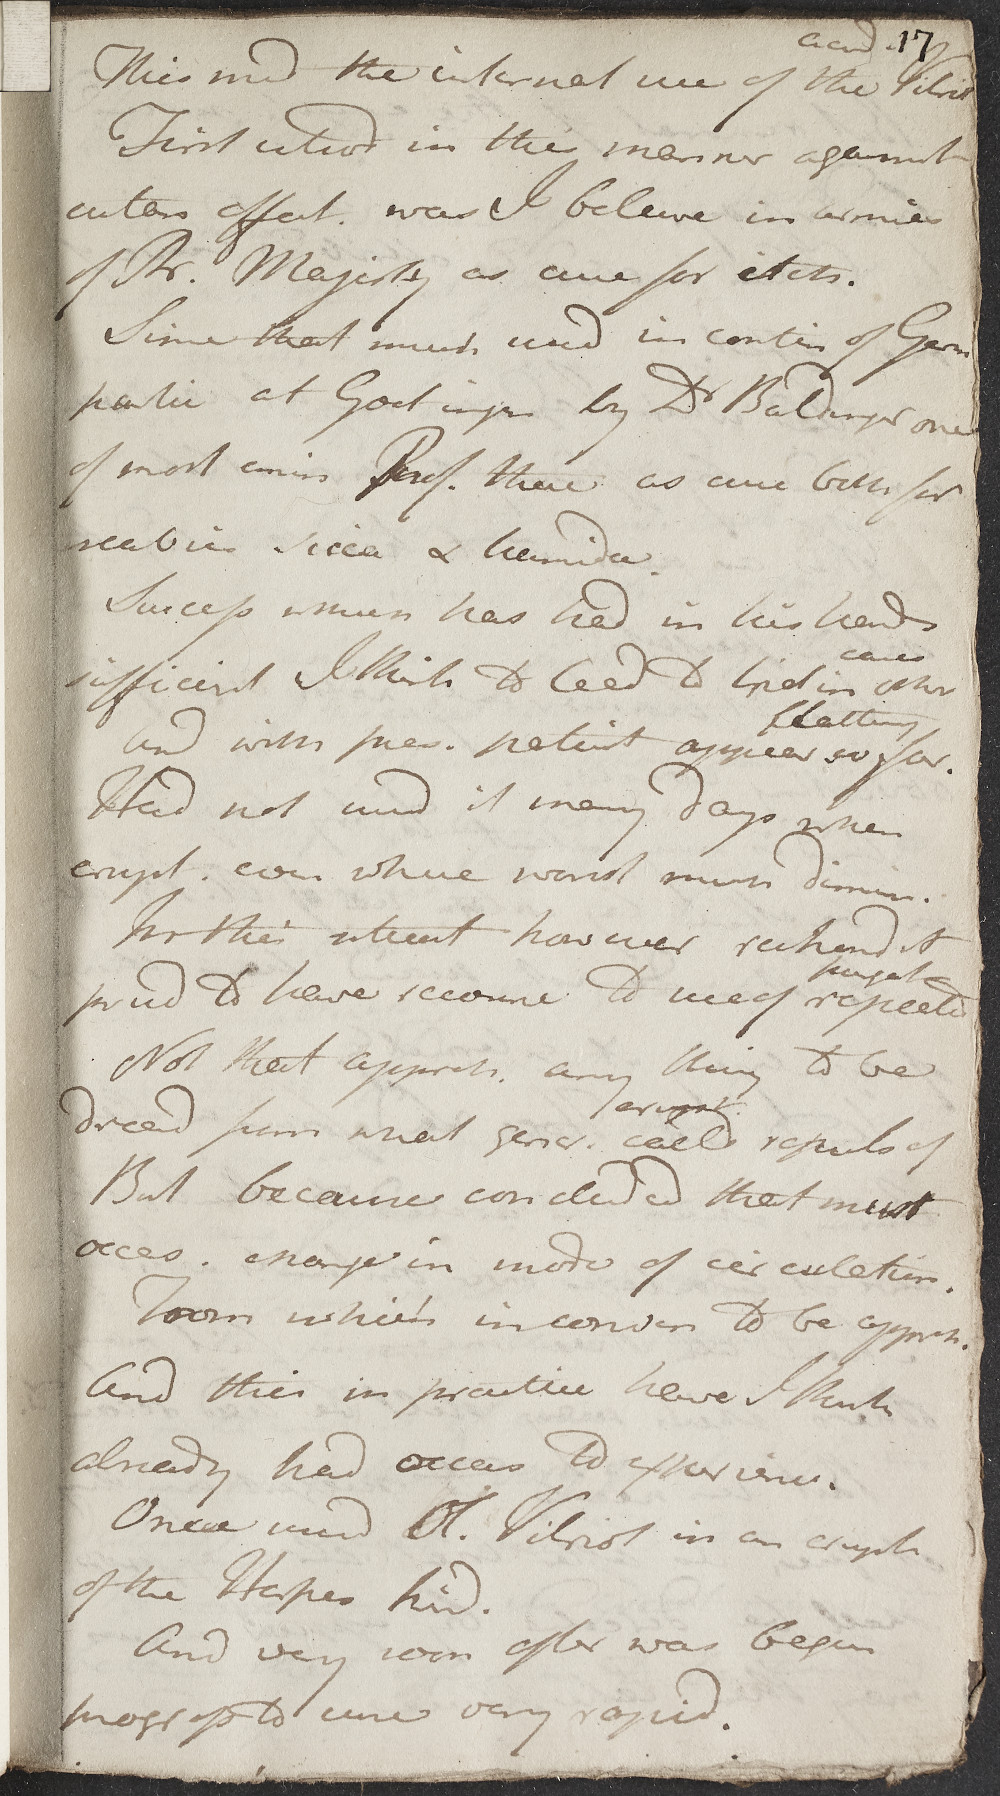 17
acid of
This med the internal use of the Vitriol
First introd in this manner against
cutan affect. was I beleive in armies
of Pr. Majisty as cure for itch.
Since that much used in contin of Germ
partic at Gottingen by Dr Baldinger one
of most emin Prof. there as cure both for
scabies sicca & humida.
Success which has had in his hands
cases
sufficient I think to lead to trial in other
and with pres. patient appear so far.
flatting
Had not used it many days when
erupt. even where worst much dimin.
In this intent however
prud to have recourse to use of repeated
purgat
Not that appreh. any thing to be
erupt
dread from what gener. calld repuls of
But because concluded that must
occas. change in mode of circulation.
From which inconven to be appreh.
And this in practice have I think
already had occas to experience.
Once used Ol. Vitriol in an erupt
of the Herpes kind.
And very soon after was begun
progress to cure very rapid.